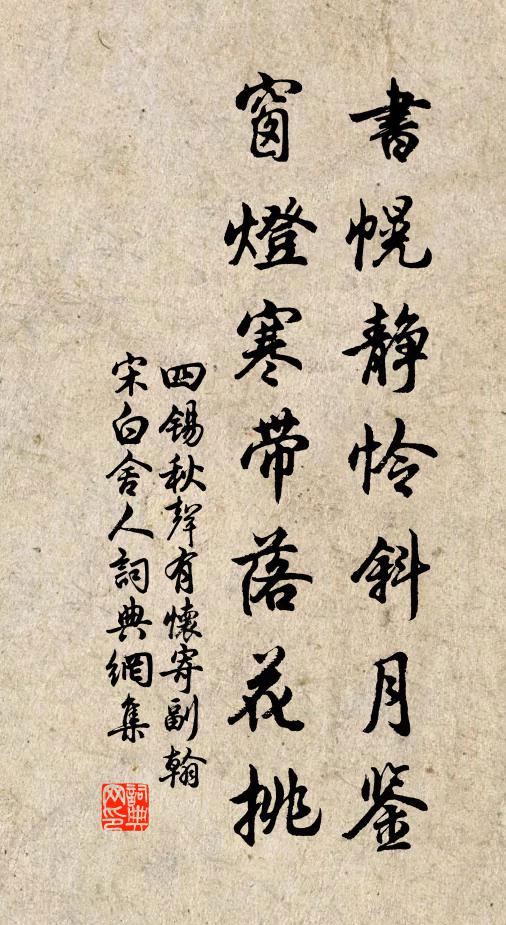 書幌静怜斜月鉴
窗燈寒带落花挑
四锡秋聲有懷寄副翰
宋白舍人詞典網集
詞典網印